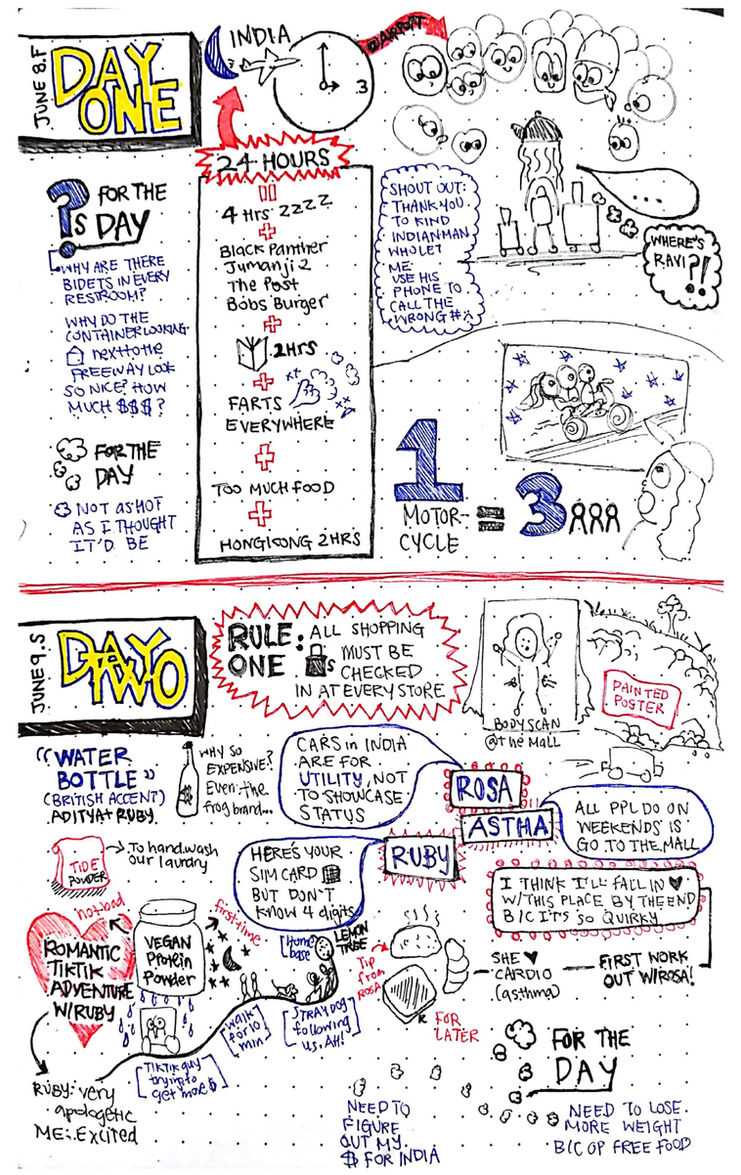 JUNE 8.F
DAY
ONE
INDIA
3
@AIRPORT
24 HOURS
4 Hrs ZZZZ
Black Panther
Jumanji 2
The Post
Bobs Burger
2HRS
FARTS
EVERYWHERE
TOO MUCH FOOD
HONGKONG 2HRS
?s FOR THE
DAY
WHY ARE THERE
BIDETS IN EVERY
RESTROOM?
WHY DO THE
CONTAINER LOOKING
next to the
FREEWAY LOOK
SO NICE? HOW
MUCH $$$?
FOR THE
DAY
NOT AS HOT
AS I THOUGHT
IT'D BE
SHOUT OUT:
THANK YOU
TO KIND
INDIAN MAN
WHO LET
ME
USE HIS
PHONE TO
CALL THE
WRONG #
...
WHERE'S
RAVI?!
1
MOTOR-
CYCLE
= 3
JUNE 9.S
DAY
TWO
RULE:
ONE
ALL SHOPPING
s MUST BE
CHECKED
IN AT EVERY STORE
BODY SCAN
@THE MALL
PAINTED
POSTER
"WATER
BOTTLE"
(BRITISH ACCENT)
ADITYA + RUBY
$
WHY SO
EXPENSIVE?
Even the
frog brand...
CARS in INDIA
ARE FOR
UTILITY, NOT
TO SHOWCASE
STATUS
ROSA
ASTHA
ALL PPL DO ON
WEEKENDS IS
GO TO THE MALL
RUBY
HERE'S YOUR
SIM CARD
BUT DON'T
KNOW 4 digits
TIDE
POWDER
To handwash
our laundry
I THINK I'LL FALL IN ♥
W/THIS PLACE BY THE END
B/C IT'S SO QUIRKY
not bad
VEGAN
Protein
Powder
first-time
ROMANTIC
TIKTIK
ADVENTURE
W/RUBY
[Home
base]
LEMON
TREE
Tip
from
ROSA
FOR
LATER
SHE ♥
CARDIO
(asthma)
FIRST WORK
OUT W/ROSA!
[walk
for 10
min]
[STRAY DOG
following
us. AH!]
[TIKTIK guy
trying to
get more $]
RUBY: very
apologetic
ME: Excited
FOR THE
DAY
NEED TO
FIGURE
OUT MY
$ FOR INDIA
NEED TO LOSE
MORE WEIGHT
B/C OF FREE FOOD